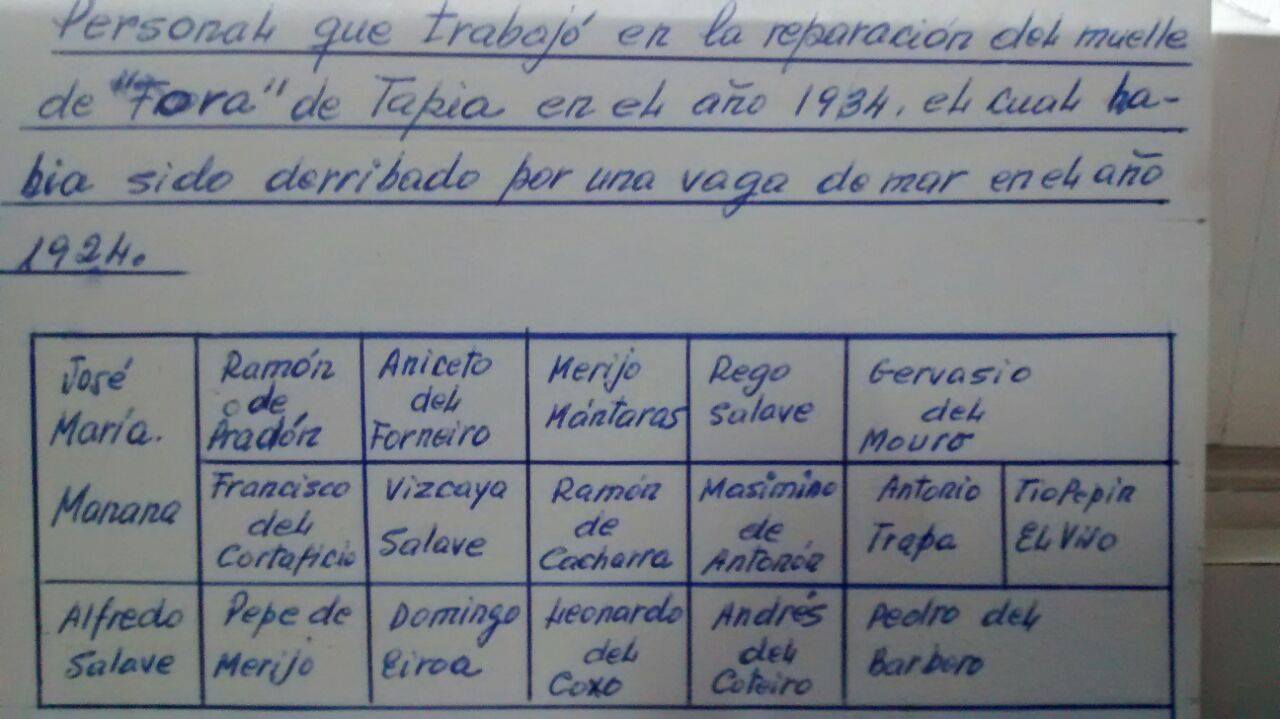 Personal que trabajó en la reparación del muelle
de "Fora" de Tapia en el año 1934. el cual ha-
bia sido derribado por una vaga de mar en el año
1924.
José
María.
Manana
Ramón
de
Pradón
Aniceto
del
Forneiro
Merijo
Mántaras
Rego
Salave
Gervasio
del
Mouro
Francisco
del
Cortaficio
Vizcaya
Salave
Ramón
de
Cacharra
Masimino
de
Antonón
Antonio
Trapa
Tio Pepin
El Viso
Alfredo
Salave
Pepe de
Merijo
Domingo
Eiroa
Leonardo
del
Coxo
Andrés
del
Coteiro
Pedro del
Barbero